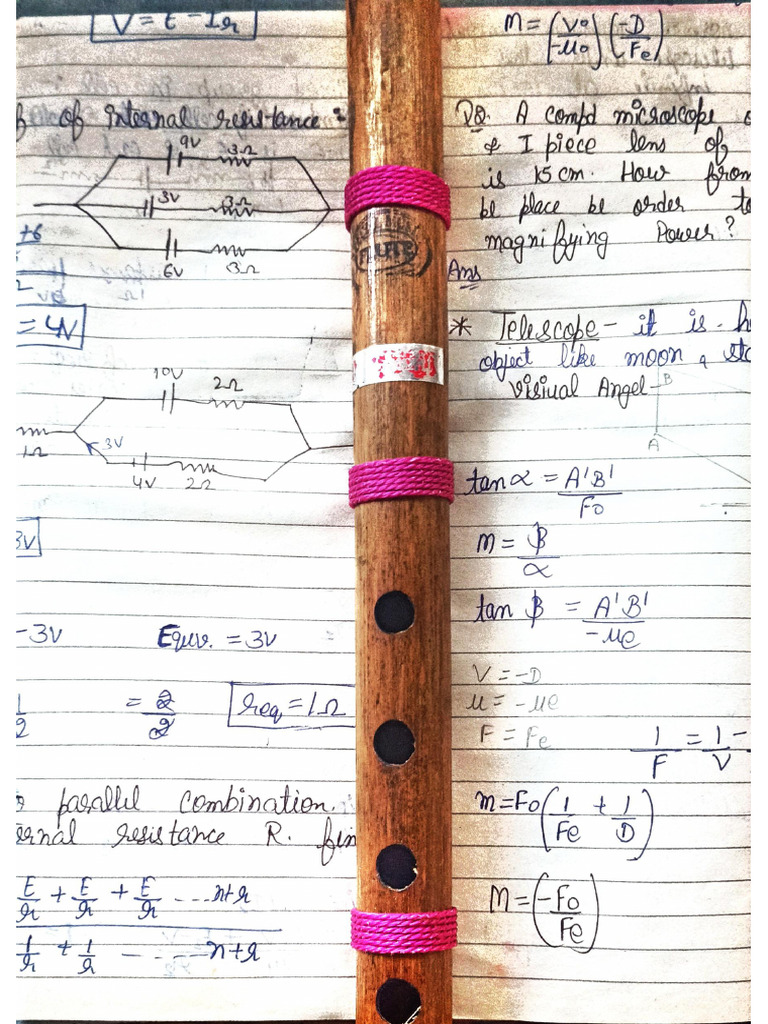 V = E - Ir
of internal resistance :
9V 3Ω
3V 3Ω
6V 3Ω
+6
2
= 4V
10V 2Ω
1Ω 3V
4V 2Ω
3V
-3V Equv. = 3V
1/2 = 2/2 req = 1Ω
parallel combination.
ernal resistance R. fin
E/r + E/r + E/r ... n+r
1/r + 1/r - ..... n+r
FLUTE
M = (Vo/-μo) (-D/Fe)
Q8. A compd microscope
& I piece lens of
is 15 cm. How from
be place be order to
magnifying Power?
Ans
* Telescope - it is h
object like moon, sta
visiual Angel
B
A
tan α = A'B'/Fo
m = β/α
tan β = A'B'/-μe
V = -D
μ = -μe
F = Fe 1/F = 1/V -
m = Fo (1/Fe + 1/D)
M = (-Fo/Fe)